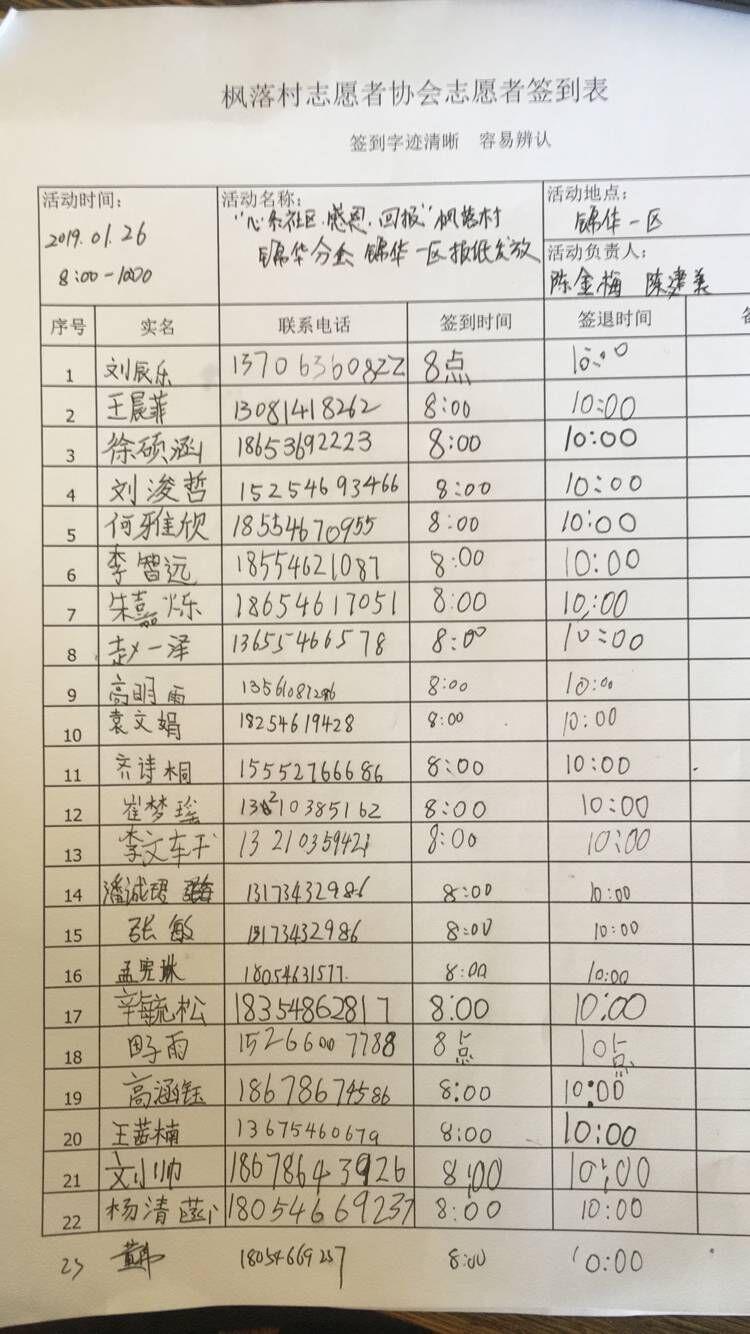 枫落村志愿者协会志愿者签到表
签到字迹清晰 容易辨认
活动时间： 2019.01.26 8:00-10:00
活动名称： "心系社区.感恩.回报"枫落村 锦华分会 锦华一区报纸发放
活动地点： 锦华一区
活动负责人： 陈金梅 陈建美
序号 实名 联系电话 签到时间 签退时间
1 刘辰乐 13706360822 8点 10:00
2 王晨菲 13081418262 8:00 10:00
3 徐硕涵 18653692223 8:00 10:00
4 刘浚哲 15254693466 8:00 10:00
5 何雅欣 18554670955 8:00 10:00
6 李智远 18554621087 8:00 10:00
7 朱嘉烁 18654617051 8:00 10:00
8 赵一泽 13655466578 8:00 10:00
9 高明雨 13561087286 8:00 10:00
10 袁文娟 18254619428 8:00 10:00
11 齐诗桐 15552766686 8:00 10:00
12 崔梦瑶 13210385162 8:00 10:00
13 李文车 13210359421 8:00 10:00
14 潘诚珺 13173432986 8:00 10:00
15 张敏 13173432986 8:00 10:00
16 孟宪琳 18054631577. 8:00 10:00
17 辛毓松 18354862817 8:00 10:00
18 田子雨 15266007788 8点 10点
19 高涵钰 18678674586 8:00 10:00
20 王茜楠 13675460679 8:00 10:00
21 文小帅 18678643926 8:00 10:00
22 杨清 18054669237 8:00 10:00
23 18054669237 8:00 10:00